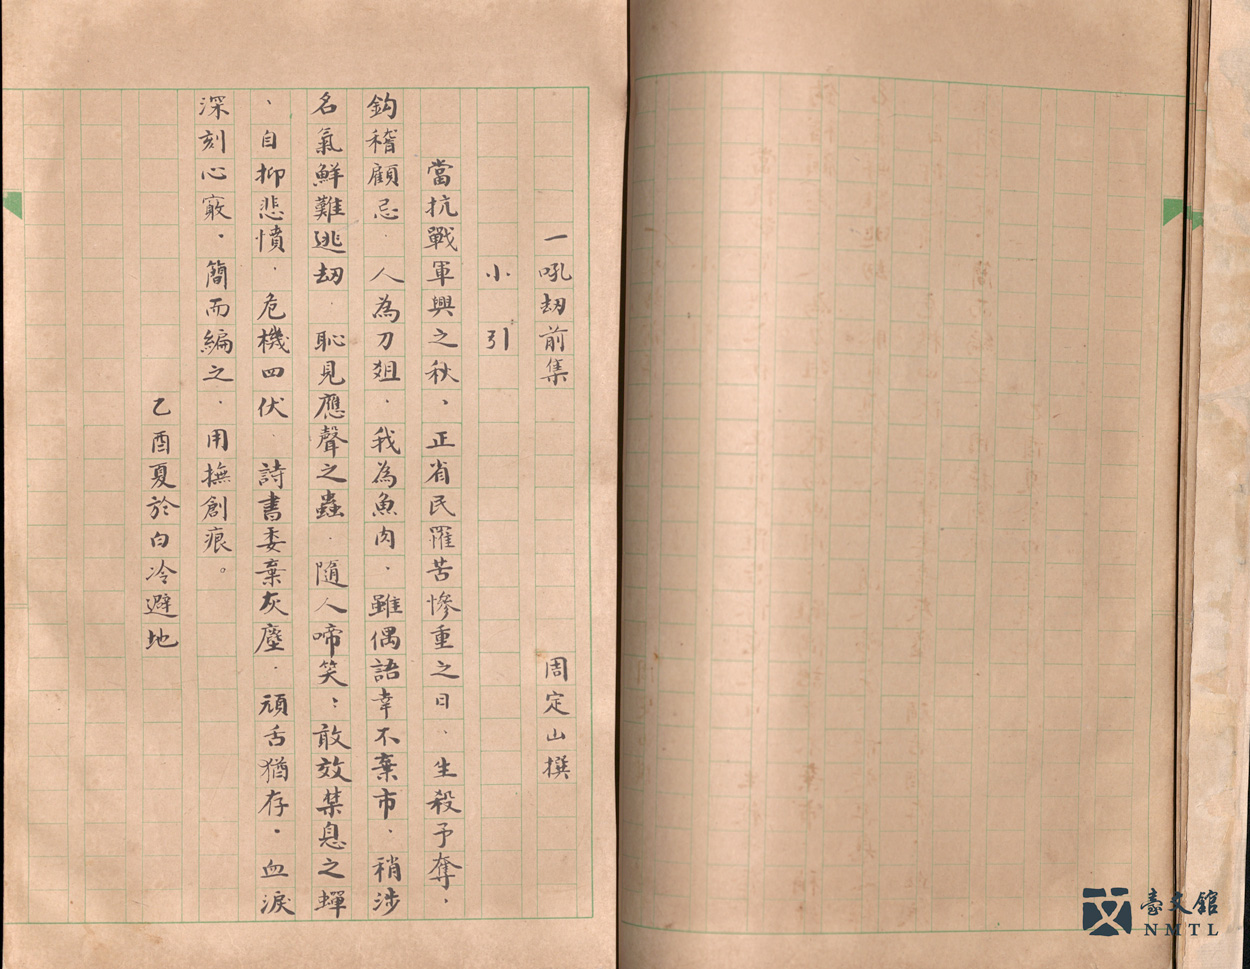 一吼劫前集　周定山撰
小引
當抗戰軍興之秋、正省民罹苦慘重之日、生殺予奪、
鈎稽顧忌、人為刀俎、我為魚肉、雖偶語幸不棄市、稍涉
名氣鮮難逃劫、恥見應聲之蟲、隨人啼笑；敢效禁息之蟬
、自抑悲憤、危機四伏、詩書委棄灰塵、頑舌猶存、血淚
深刻心竅、簡而編之、用撫創痕。
乙酉夏於白冷避地
臺文館
NMTL